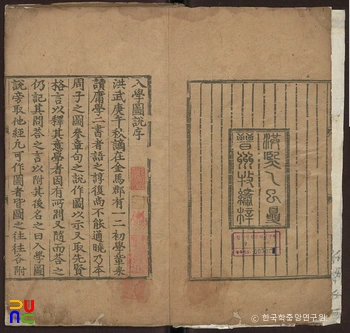 洪熙乙巳夏
晉州牧繡梓
入學圖說序
洪武庚午秋謫在金馬郡有一二初學輩來
讀庸學二書者語之諄復尚不能通曉乃本
周子之圖參章句之說作圖以示又取先賢
格言以釋其意學者因有所問又隨而答之
仍記其問答之言以附其後名之曰入學圖
說旁取他經凡可作圖者皆圖之往往各附
© 한국학중앙연구원